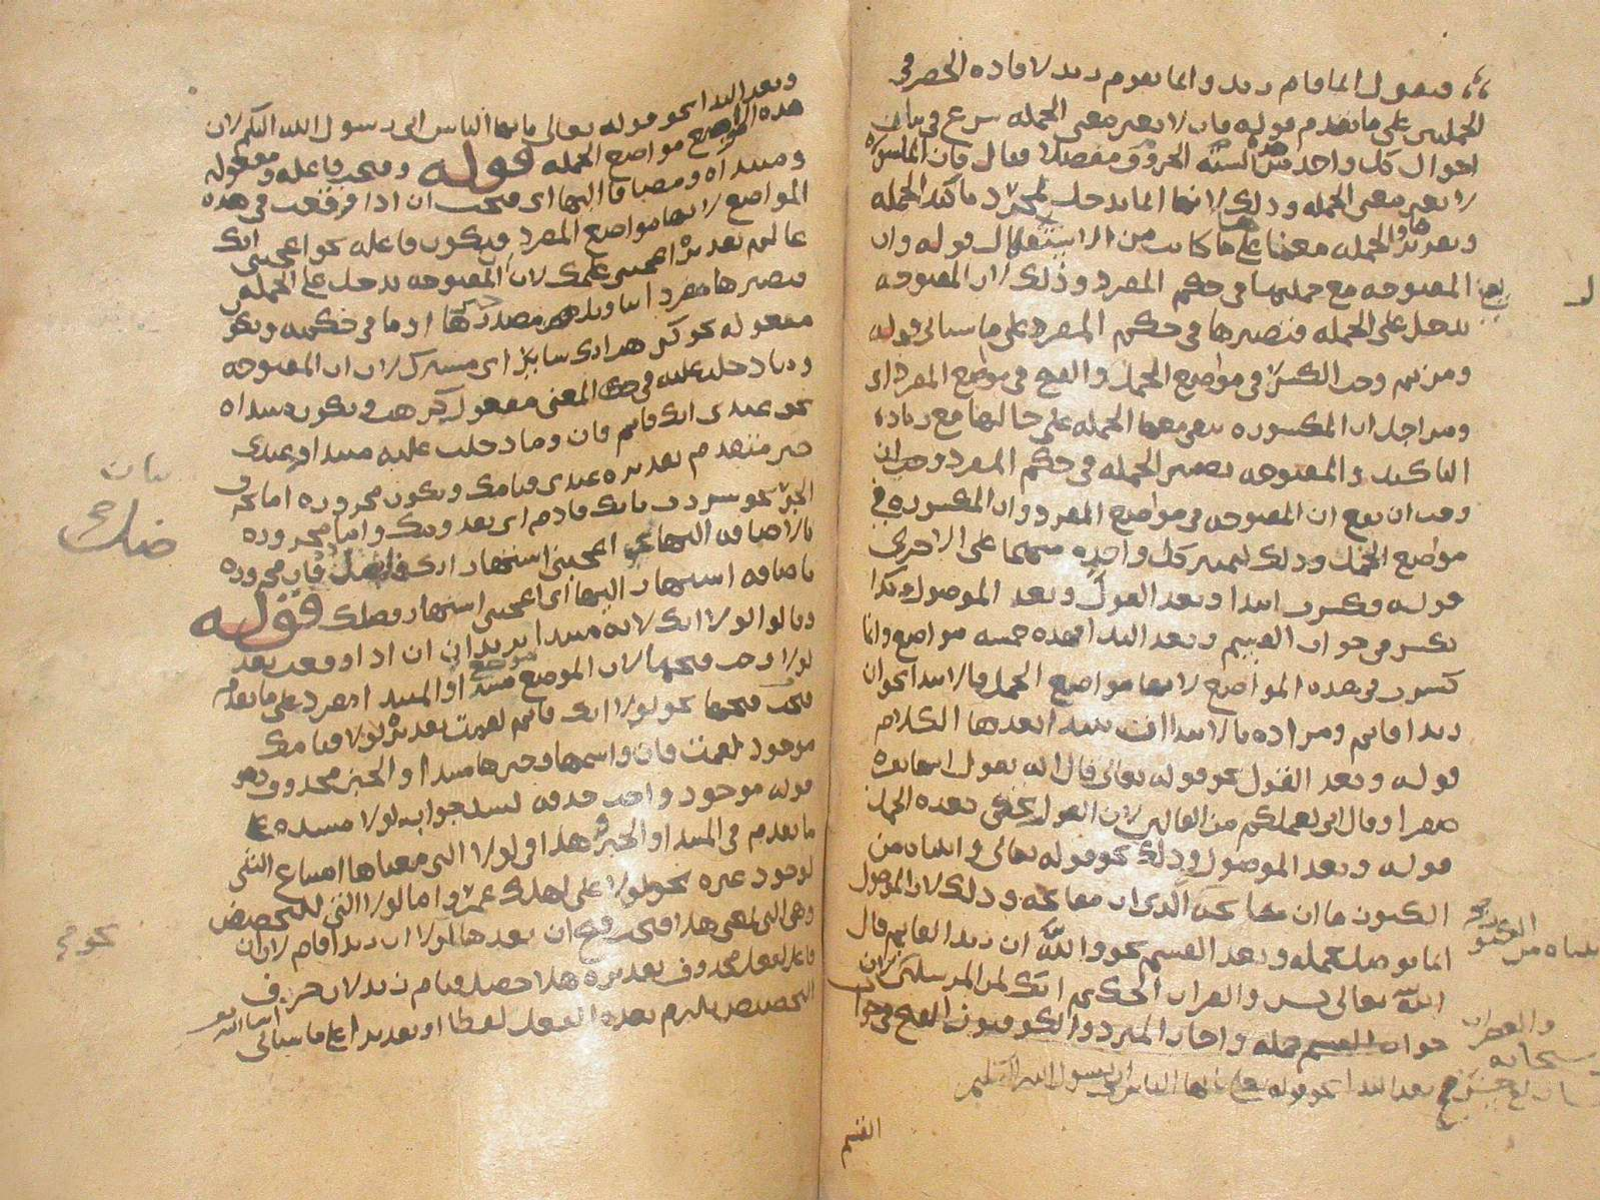 وتقول انما قام زيد وانما يقوم زيد لافادة الحصر في
الجملتين على ما تقدم قوله فان لا تغير معنى الجملة شرع في بيان
احوال كل واحد من هذه الستة الحروف مفصلا فقال فان المكسورة
لا تغير معنى الجملة وذلك لانها انما تدخل لمجرد تاكيد الجملة
وتقرير الجملة معناها على ما كانت من الاستقلال قوله وان
المفتوحة مع جملتها في حكم المفرد وذلك لان المفتوحة
تدخل على الجملة فتصيرها في حكم المفرد على ما سياتي قوله
ومن ثم وجب الكسر في مواضع الجمل والفتح في موضع المفرد اي
ومن اجل ان المكسورة تبقى معها الجملة على حالها مع زيادة
التاكيد والمفتوحة تصير الجملة في حكم المفرد وجب ان
وجب ان تقع ان المفتوحة في مواضع المفرد وان المكسورة في
مواضع الجمل وذلك لتميز كل واحدة منهما على الاخرى
قوله فكسرت ابتداء وبعد القول وبعد الموصول وكذا
تكسر في جواب القسم وبعد النداء فهذه خمسة مواضع وانما
كسرت في هذه المواضع لانها مواضع الجمل فالابتداء نحو ان
زيدا قائم ومراده بالابتداء ان يبتدا بعدها الكلام
قوله وبعد القول نحو قوله تعالى قال انه يقول انها بقرة
صفرا وقال اني لعملكم من القالين لان القول يحكى بعده الجمل
قوله وبعد الموصول وذلك نحو قوله تعالى واتيناه من
الكنوز ما ان مفاتحه الذي ان مفاتحه وذلك لان الموصول
انما يوصل بجملة وبعد القسم نحو والله ان زيدا لقايم قال
الله تعالى يس والقران الحكيم انك لمن المرسلين لان
جواب القسم جملة واجاز المبرد والكوفيون الفتح في جواب
بعد النداء نحو قوله تعالى يا ايها الناس اني رسول الله اليكم
القسم
وبعد النداء نحو قوله تعالى يا ايها الناس اني رسول الله اليكم لان
هذه المواضع مواضع الجملة قوله وفتحت فاعلة ومفعولة
ومبتداة ومضافا اليها اي فتحت ان اذا وقعت في هذه
المواضع لانها مواضع المفرد فيكون فاعله نحو اعجبني انك
عالم تقديره اعجبني علمك لان المفتوحة تدخل على الجملة
فتصيرها مفردا بتاويلها مصدر خبرها او ما في حكمه وتكون
مفعوله نحو كرهت انك ساير اي مسيرك لان ان المفتوحة
وما دخلت عليه في المعنى مفعول كرهت وتكون مبتداة
نحو عندي انك قائم فان وما دخلت عليه مبتدا وعندي
خبر متقدم تقديره عندي قيامك وتكون مجرورة اما بحرف
الجر نحو سررت بانك قادم اي بقدومك واما مجرورة
بالاضافة اليها نحو اعجبني اشتهار انك فاضل فان مجرورة
باضافة اشتهار اليها اي اعجبني اشتهار فضلك قوله
وقالوا لولا انك لانه مبتدا يريد ان ان اذا وقعت بعد
لولا وجب فتحها لان الموضع موضع مبتدا والمبتدا مفرد على ما تقدم
فتحت فتحها نحو لولا انك قائم لقمت تقديره لولا قيامك
موجود لقمت فان واسمها وخبرها مبتدا والخبر محذوف وهو
قوله موجود واجب حذفه لسد جواب لولا مسده على
ما تقدم في المبتدا والخبر هذا في لولا التي معناها امتناع الشي
لوجود غيره نحو لولا علي لهلك عمر واما لولا التي للتحضيض
وهي التي بمعنى هلا فتجب فتح ان بعدها لولا ان زيدا قام لان ان
فاعل لفعل محذوف تقديره هلا حصل قيام زيد لان حروف
التحضيض يلزم بعده الفعل لفظا او تقديرا على ما سياتي ان شا الله تعالى
بيان